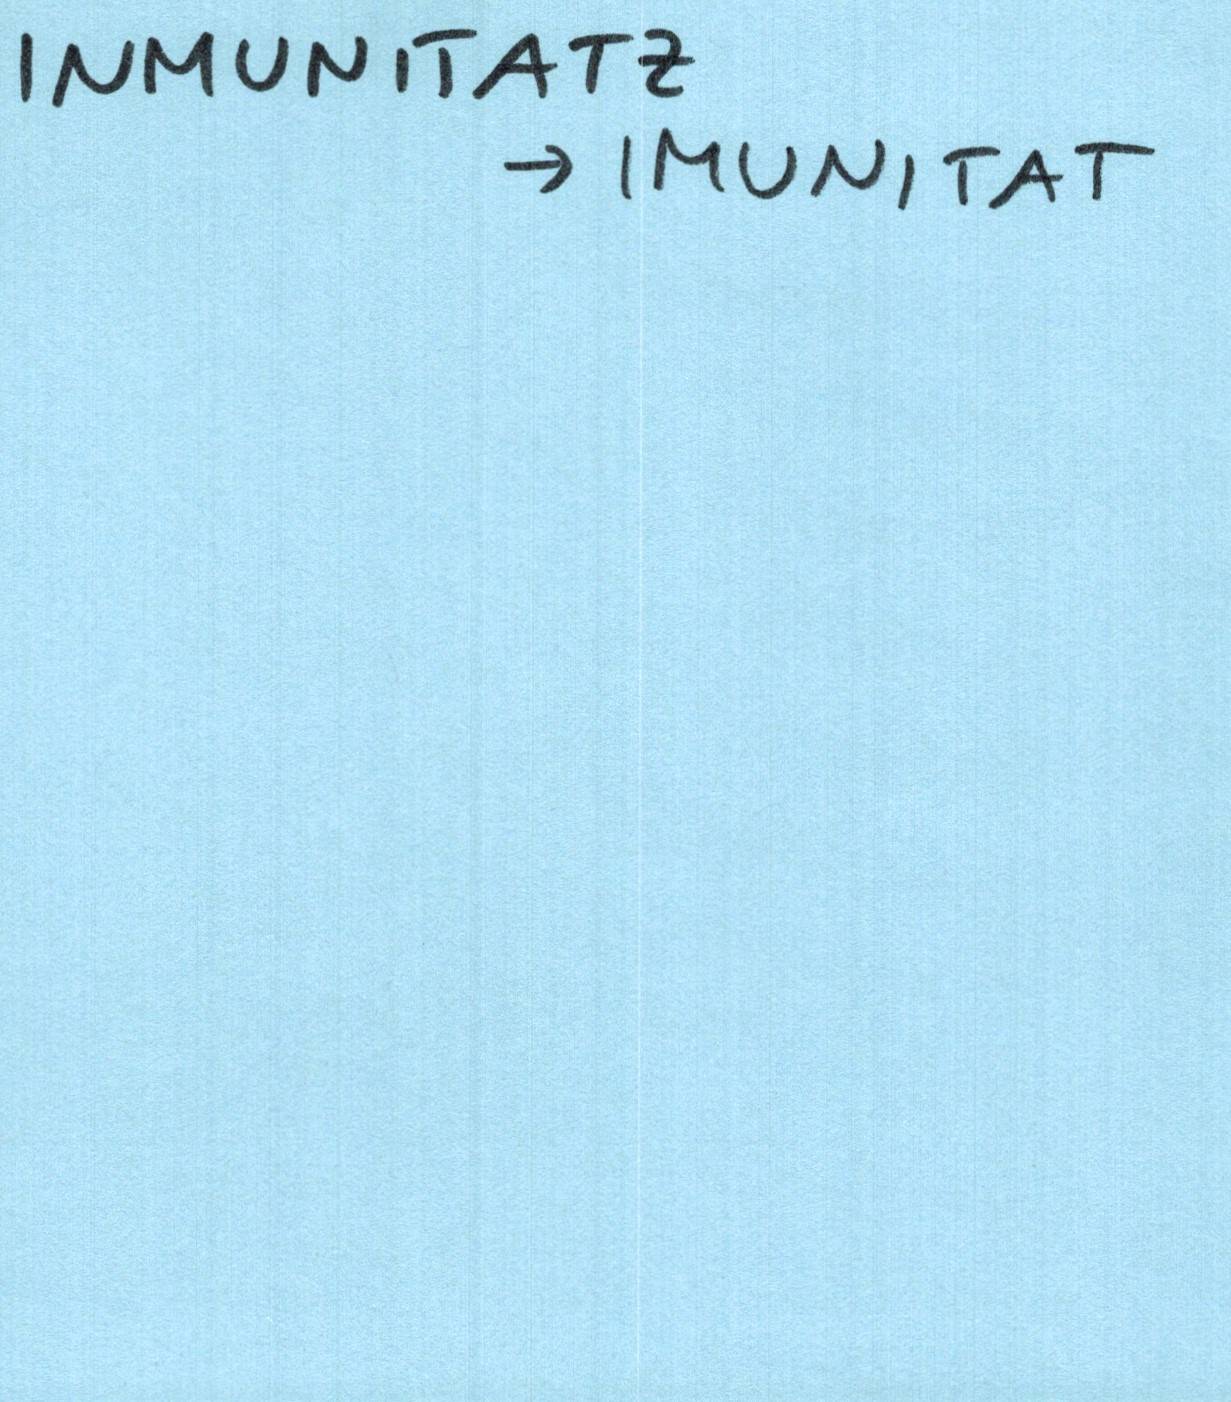 INMUNITATZ
→ IMUNITAT